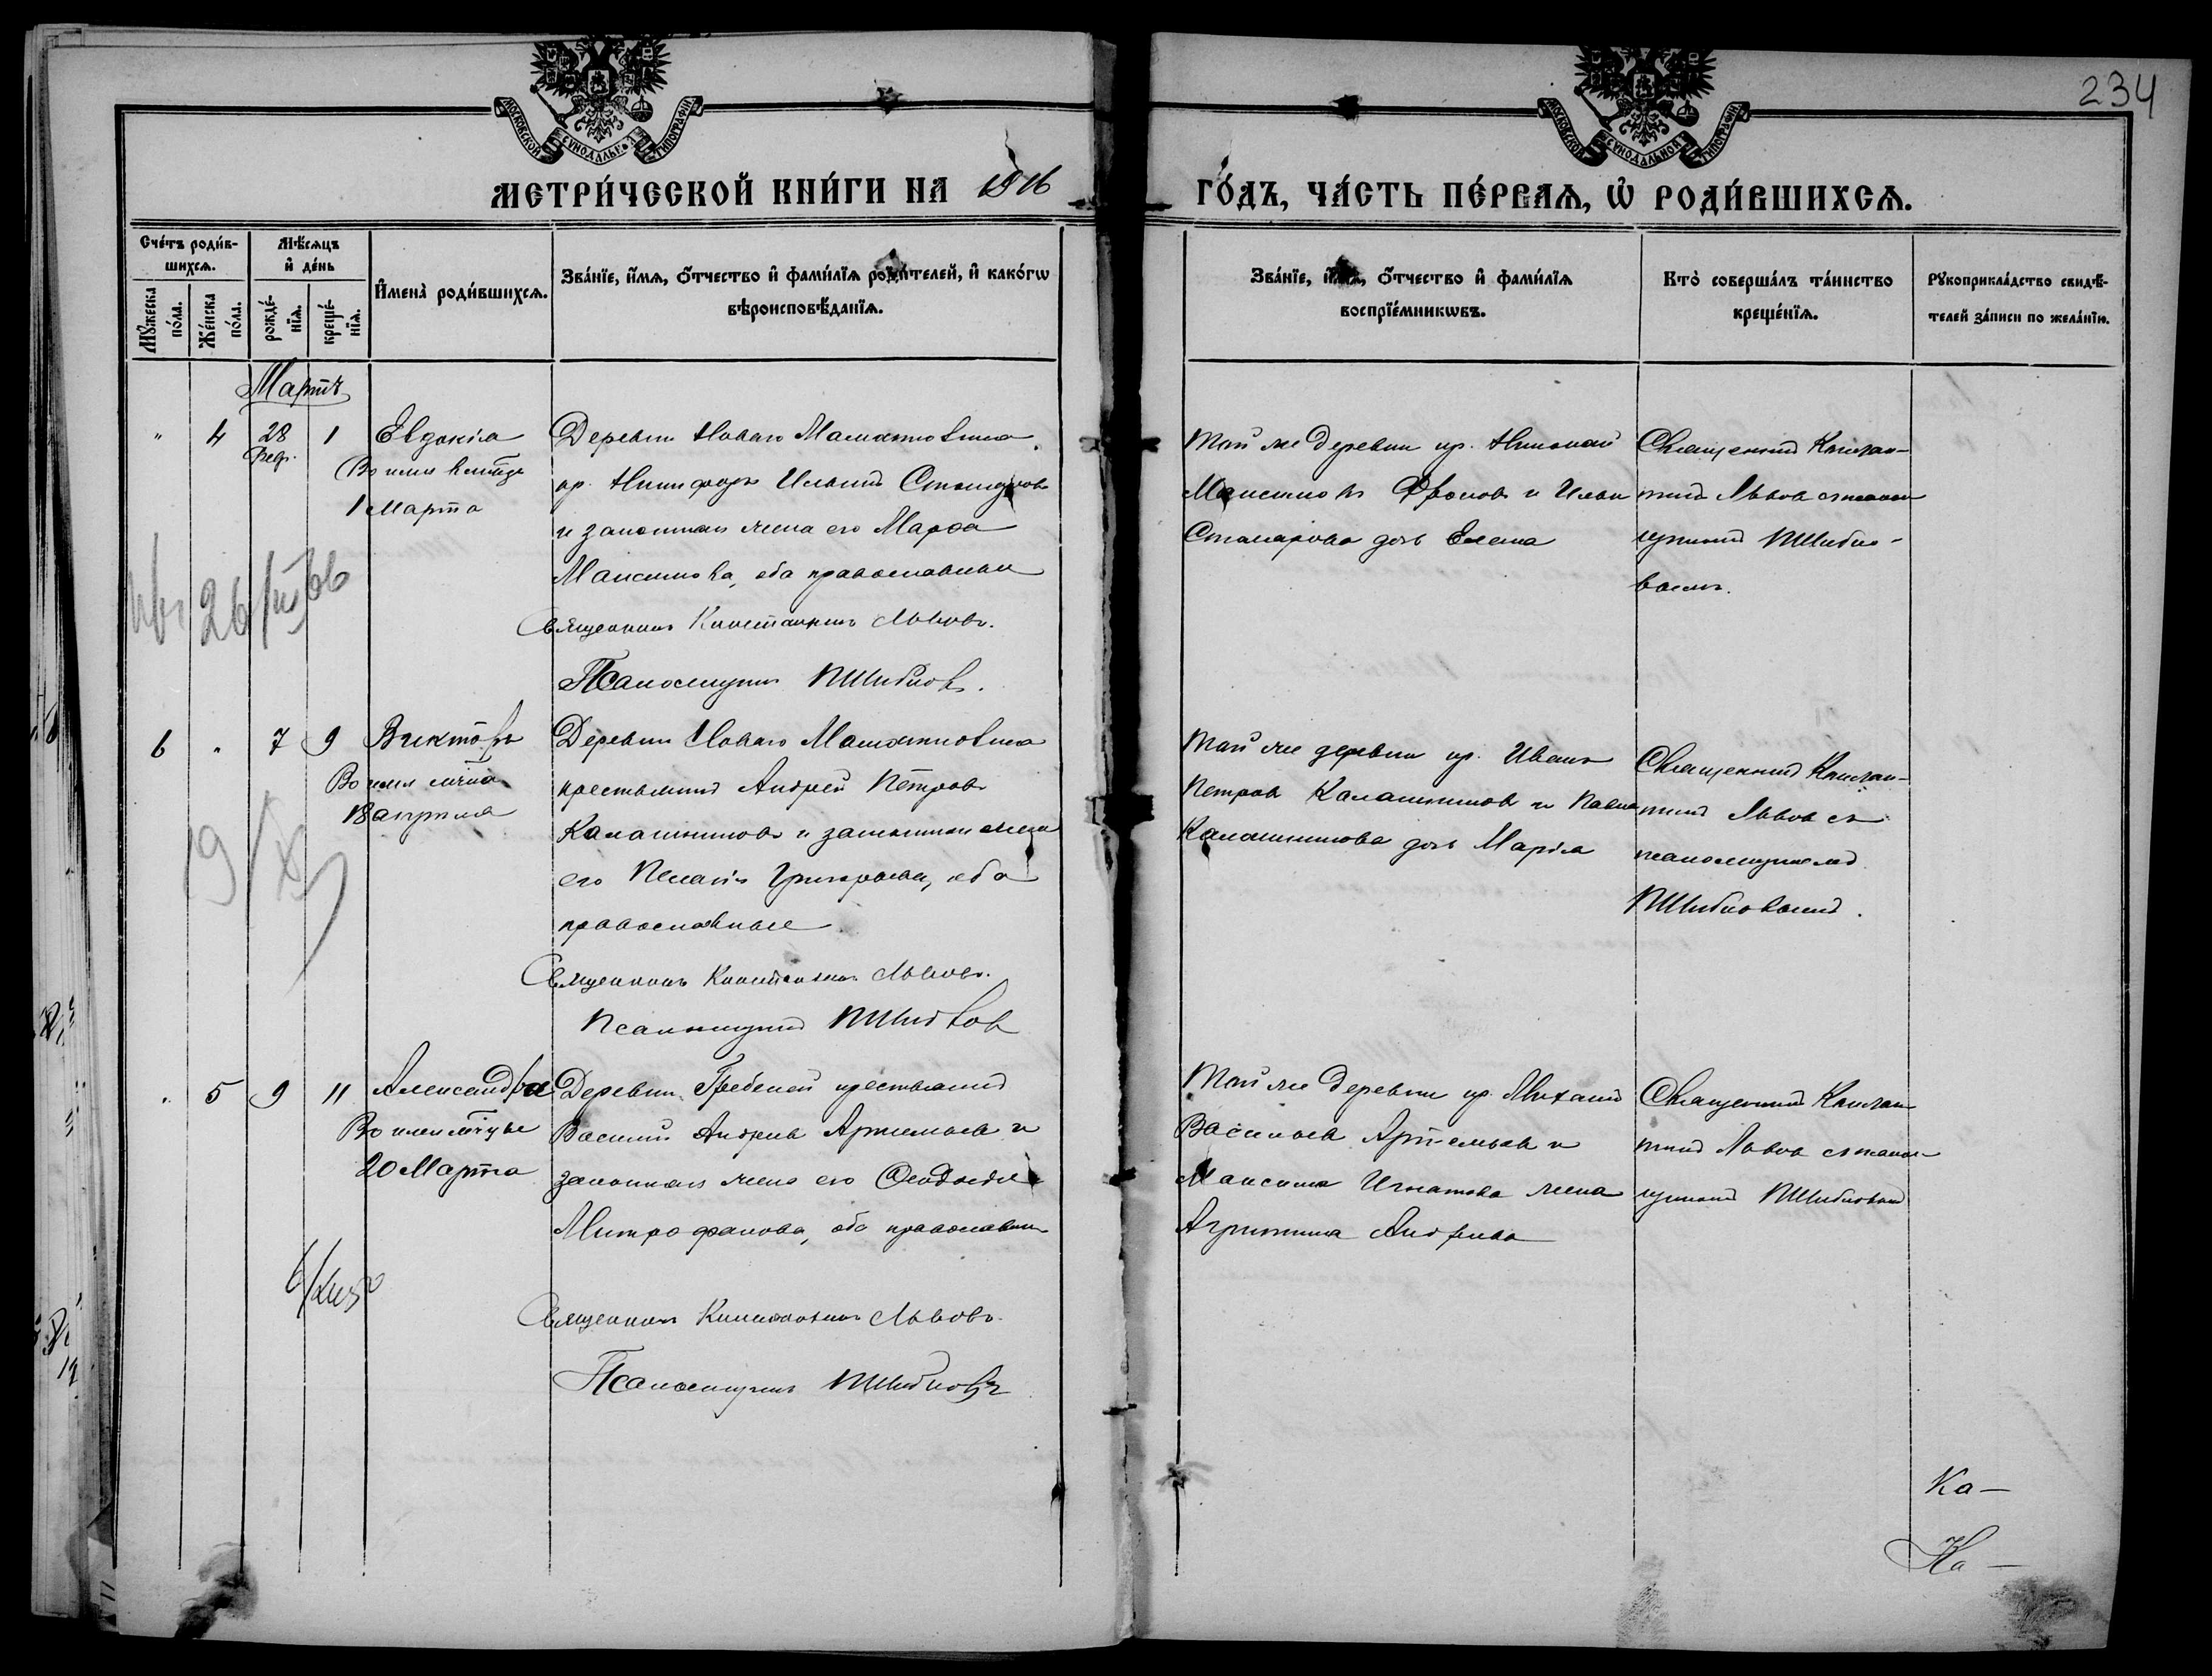 234
МОСКОВСКОЙ СѴНОДАЛЬНОЙ ТИПОГРАФІИ
МОСКОВСКОЙ СѴНОДАЛЬНОЙ ТИПОГРАФІИ
МЕТРИ́ЧЕСКОЙ КНИ́ГИ НА 1916
ГО́ДЪ, ЧА́СТЬ ПЕ́РВАѦ, Ѽ РОДИ́ВШИХСѦ.
Сче́тъ роди́в-
шихсѧ.
Мꙋ́жеска
по́ла.
Же́нска
по́ла.
Мѣ́сѧцъ
и҆ де́нь
рожде́-
нїѧ.
креще́-
нїѧ.
И҆мена̀ роди́вшихсѧ.
Зва́нїе, и҆́мѧ, ѻ҆́тчество и҆ фами́лїѧ роди́телей, и҆ како́гѡ
вѣроисповѣ́данїѧ.
Зва́нїе, и҆́мѧ, ѻ҆́тчество и҆ фами́лїѧ
воспрїе́мникѡвъ.
Кто̀ соверша́лъ та́инство
креще́нїѧ.
Рꙋкоприкла́дство свидѣ́-
телей за́писи по жела́нїю.
Мартъ
" 4 28 1 Евдокія
Февр.
Во имя
1 Марта
Деревни Новаго
кр. Никифоръ Ильинъ Столяровъ
и законная жена его Марѳа
Максимова, оба православные
Священникъ Константинъ Львовъ.
Псаломщикъ
Той же деревни кр. Николай
Максимовъ Фроловъ и Ильи
Столярова дочь Елена
Священникъ Констан-
тинъ Львовъ съ псалом-
щикомъ
26/III 66
6 " 7 9 Викторъ
Во имя
18 апрѣля
Деревни Новаго
крестьянинъ Андрей Петровъ
Калашниковъ и законная жена
его Пелагія Григорьева, оба
православные
Священникъ Константинъ Львовъ.
Псаломщикъ
Той же деревни кр. Иванъ
Петровъ Калашниковъ и Павла
Калашникова дочь Марія
Священникъ Констан-
тинъ Львовъ съ
псаломщикомъ
19/X
" 5 9 11 Александра
Во имя
20 Марта
Деревни Гребеней крестьянинъ
Василій Андреевъ Артемьевъ и
законная жена его Ѳеодосія
Митрофанова, оба православные
Священникъ Константинъ Львовъ.
Псаломщикъ
Той же деревни кр. Михаилъ
Васильевъ Артемьевъ и
Максима Игнатова жена
Агрипина Андреева
Священникъ Констан-
тинъ Львовъ съ псалом-
щикомъ
Ка—
Ка—